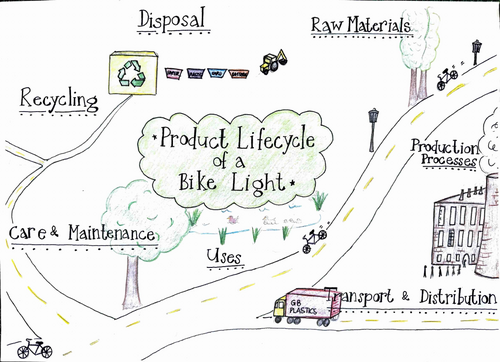 Disposal
Raw Materials
Recycling
Product Lifecycle
of a
Bike Light
Production
Processes
Care & Maintenance
Uses
GB
PLASTICS
Transport & Distribution